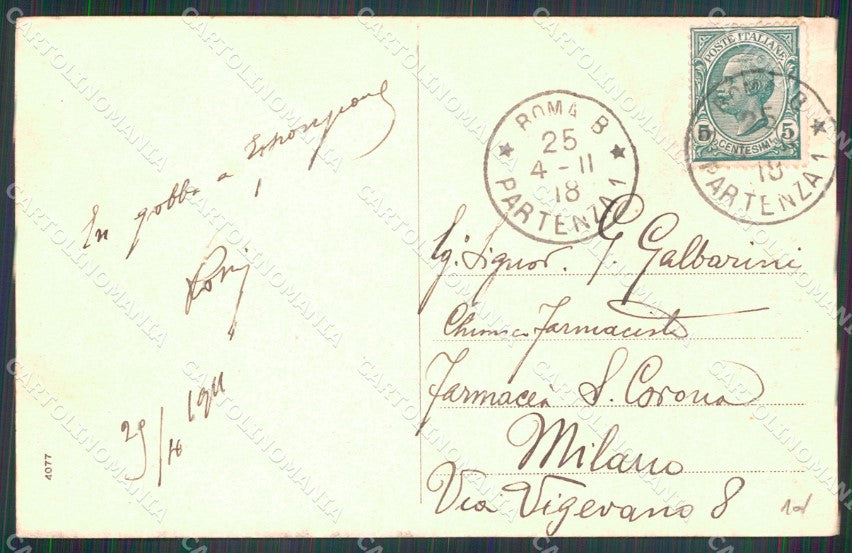 In gobba a
29/10 1911
4077
ROMA B
25
4-11
18
PARTENZA 1
POSTE ITALIANE
5 5
CENTESIMI
ROMA B
25
18
PARTENZA 1
Eg. Signor. G. Galbarini
Chimico Farmacista
Farmacia S. Corona
Milano
Via Vigevano 8
CARTOLINOMANIA